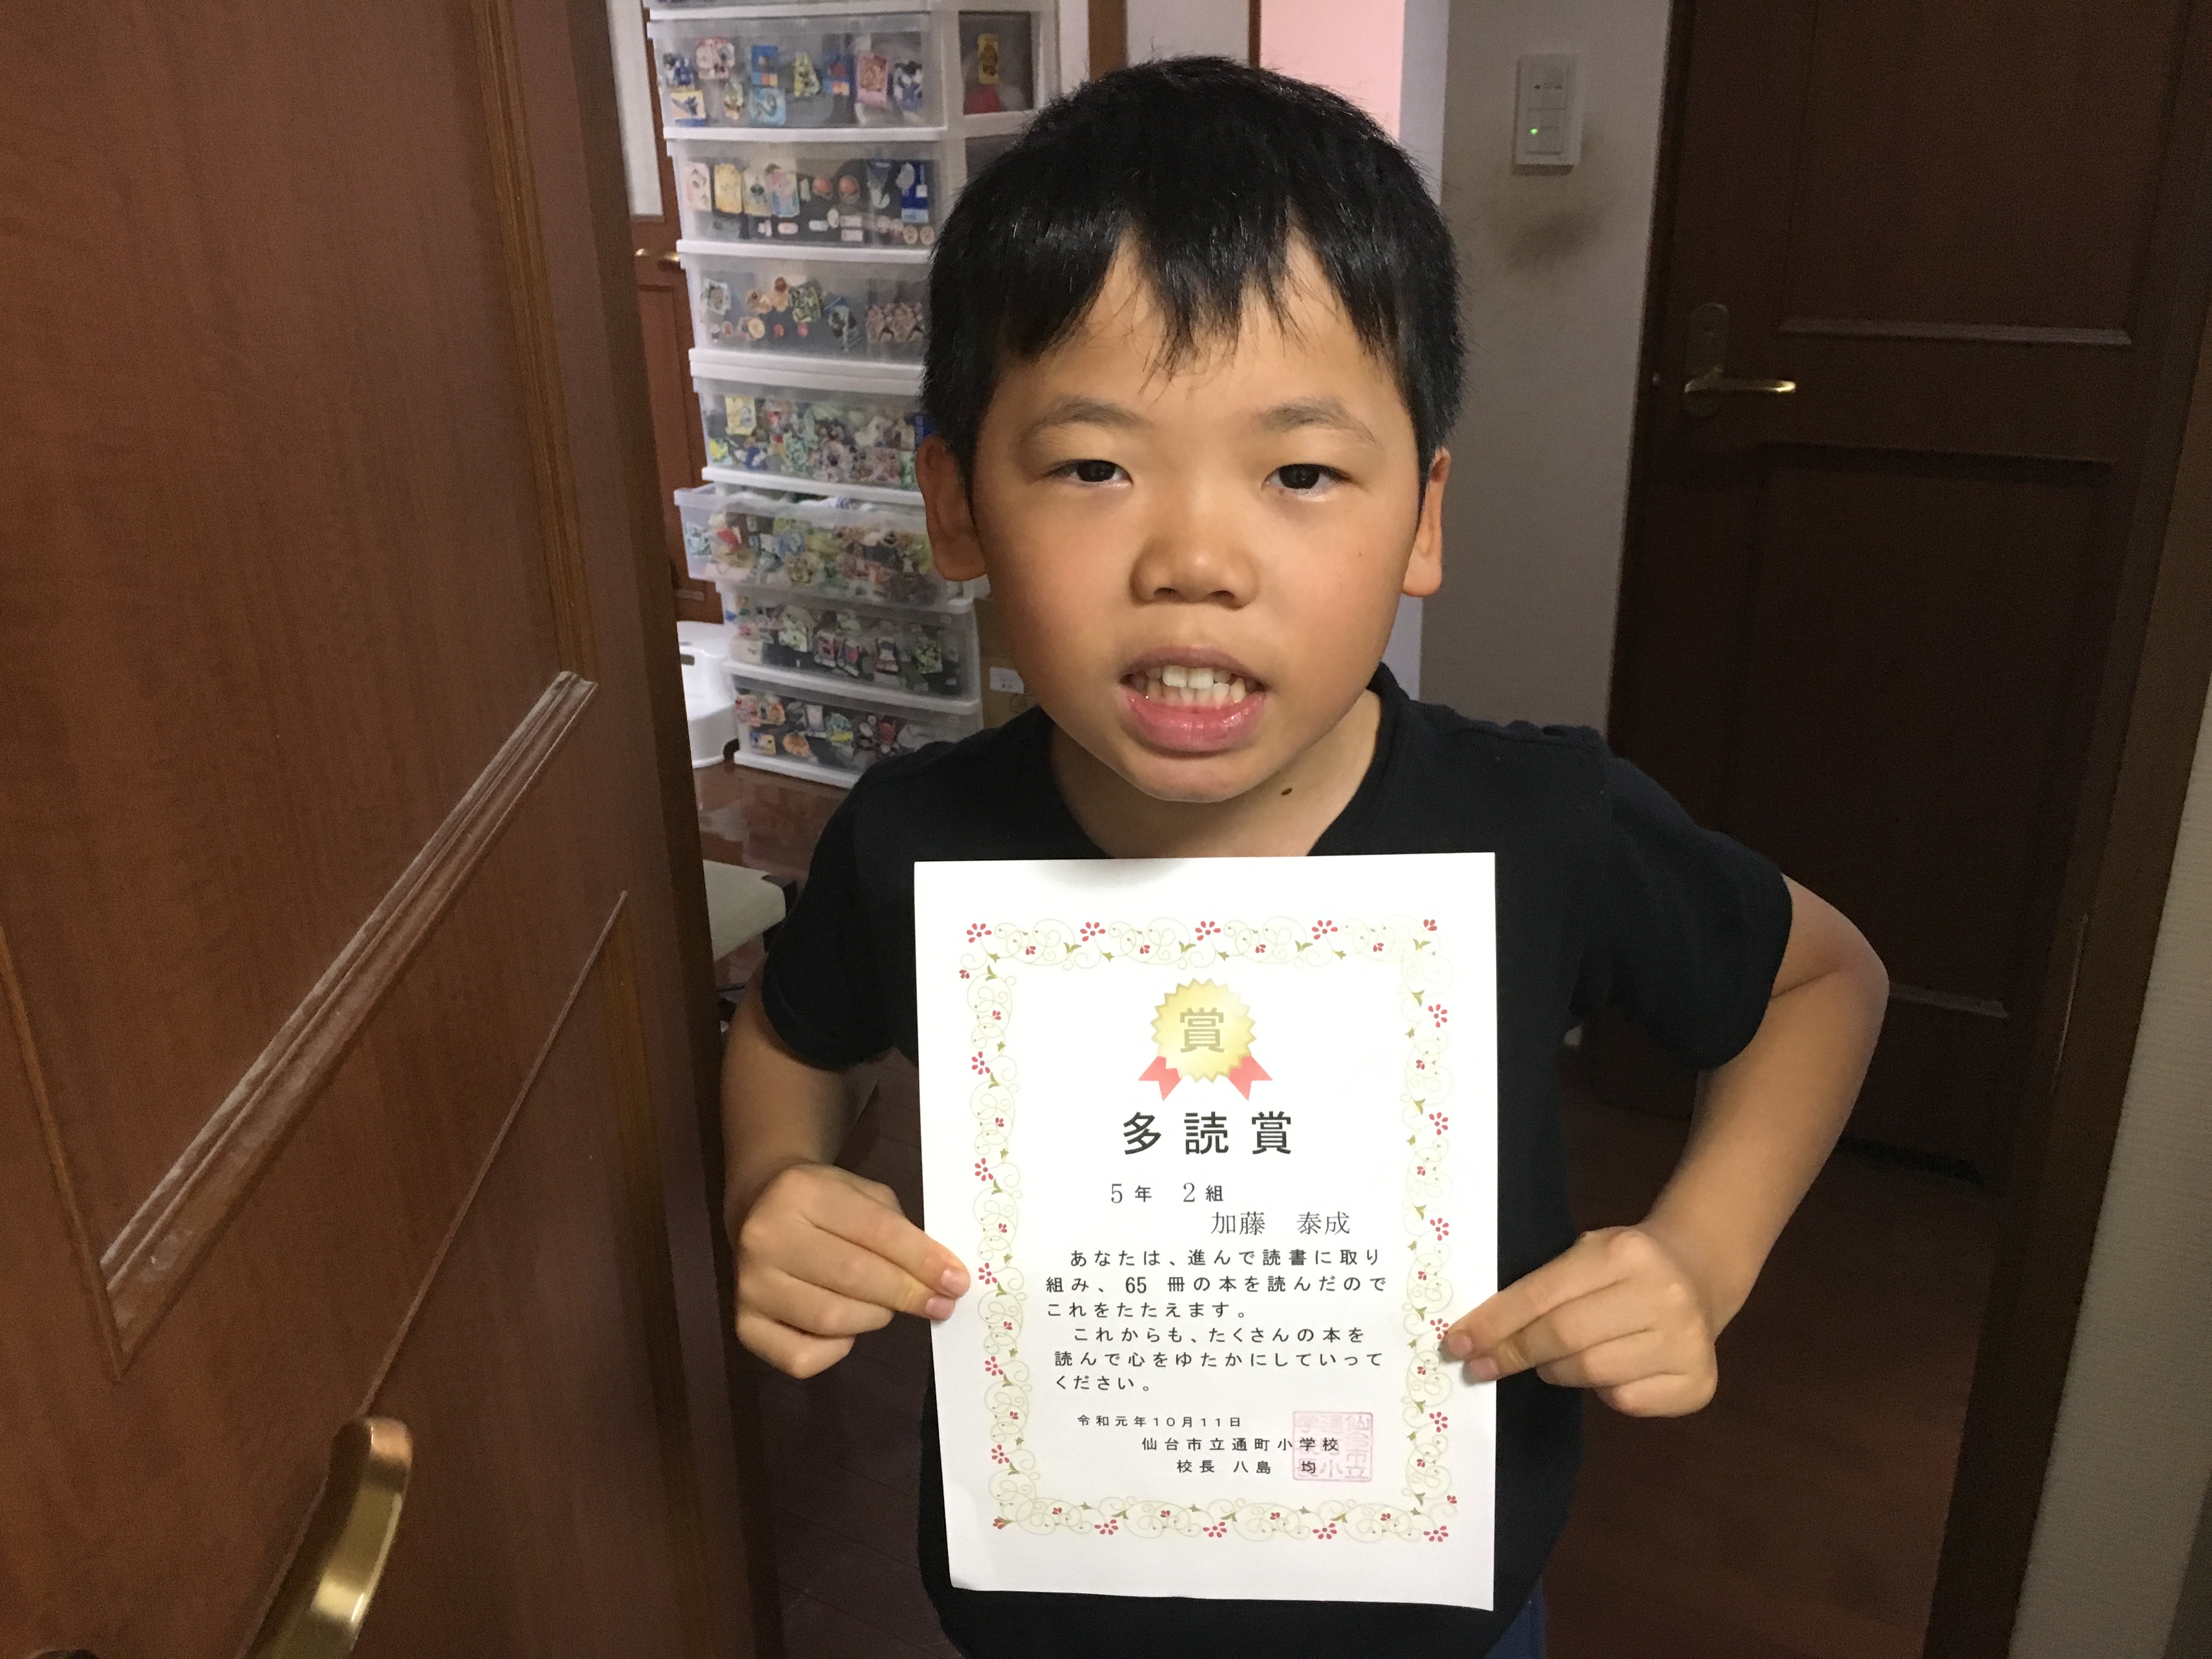 賞
多読賞
5年 2組
加藤 泰成
あなたは、進んで読書に取り
組み、65 冊の本を読んだので
これをたたえます。
これからも、たくさんの本を
読んで心をゆたかにしていって
ください。
令和元年10月11日
仙台市立通町小学校
校長 八島 均